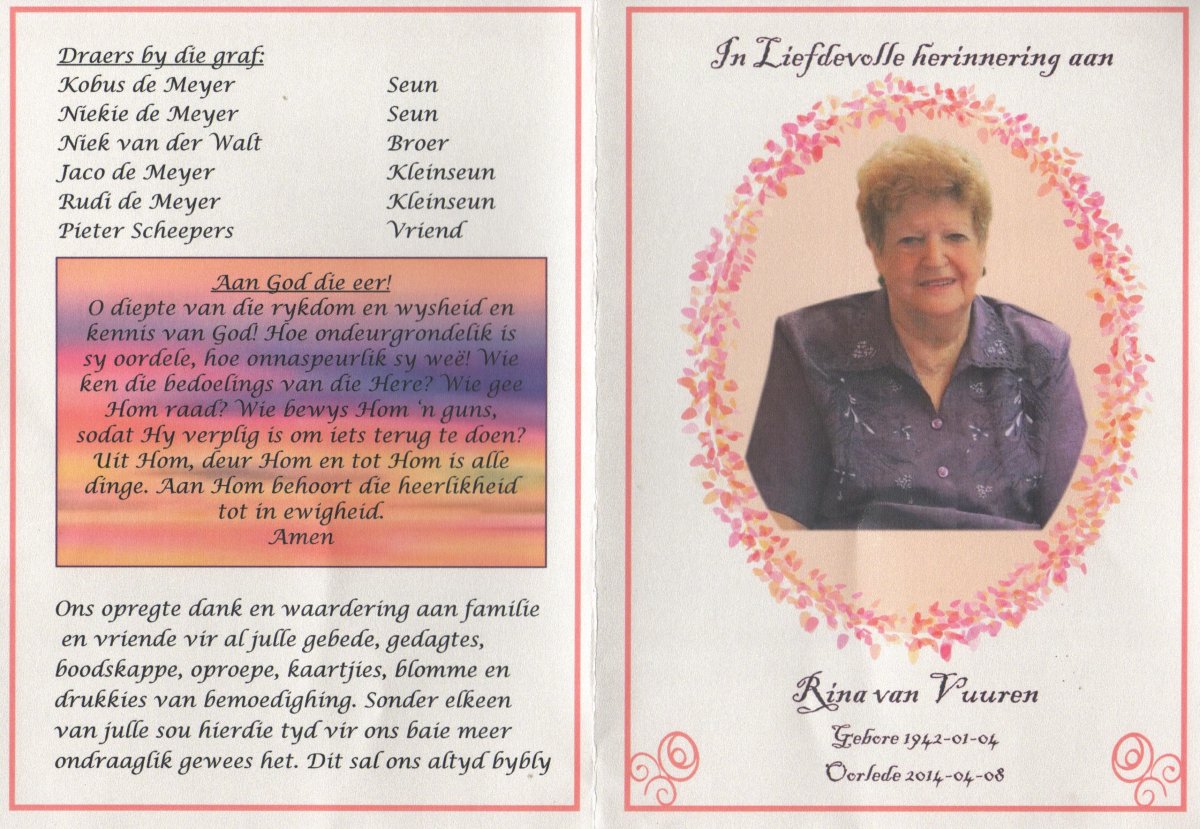 Draers by die graf:
Kobus de Meyer Seun
Niekie de Meyer Seun
Niek van der Walt Broer
Jaco de Meyer Kleinseun
Rudi de Meyer Kleinseun
Pieter Scheepers Vriend
Aan God die eer!
O diepte van die rykdom en wysheid en
kennis van God! Hoe ondeurgrondelik is
sy oordele, hoe onnaspeurlik sy weë! Wie
ken die bedoelings van die Here? Wie gee
Hom raad? Wie bewys Hom ‘n guns,
sodat Hy verplig is om iets terug te doen?
Uit Hom, deur Hom en tot Hom is alle
dinge. Aan Hom behoort die heerlikheid
tot in ewigheid.
Amen
Ons opregte dank en waardering aan familie
en vriende vir al julle gebede, gedagtes,
boodskappe, oproepe, kaartjies, blomme en
drukkies van bemoedighing. Sonder elkeen
van julle sou hierdie tyd vir ons baie meer
ondraaglik gewees het. Dit sal ons altyd bybly
In Liefdevolle herinnering aan
Rina van Vuuren
Gebore 1942-01-04
Oorlede 2014-04-08